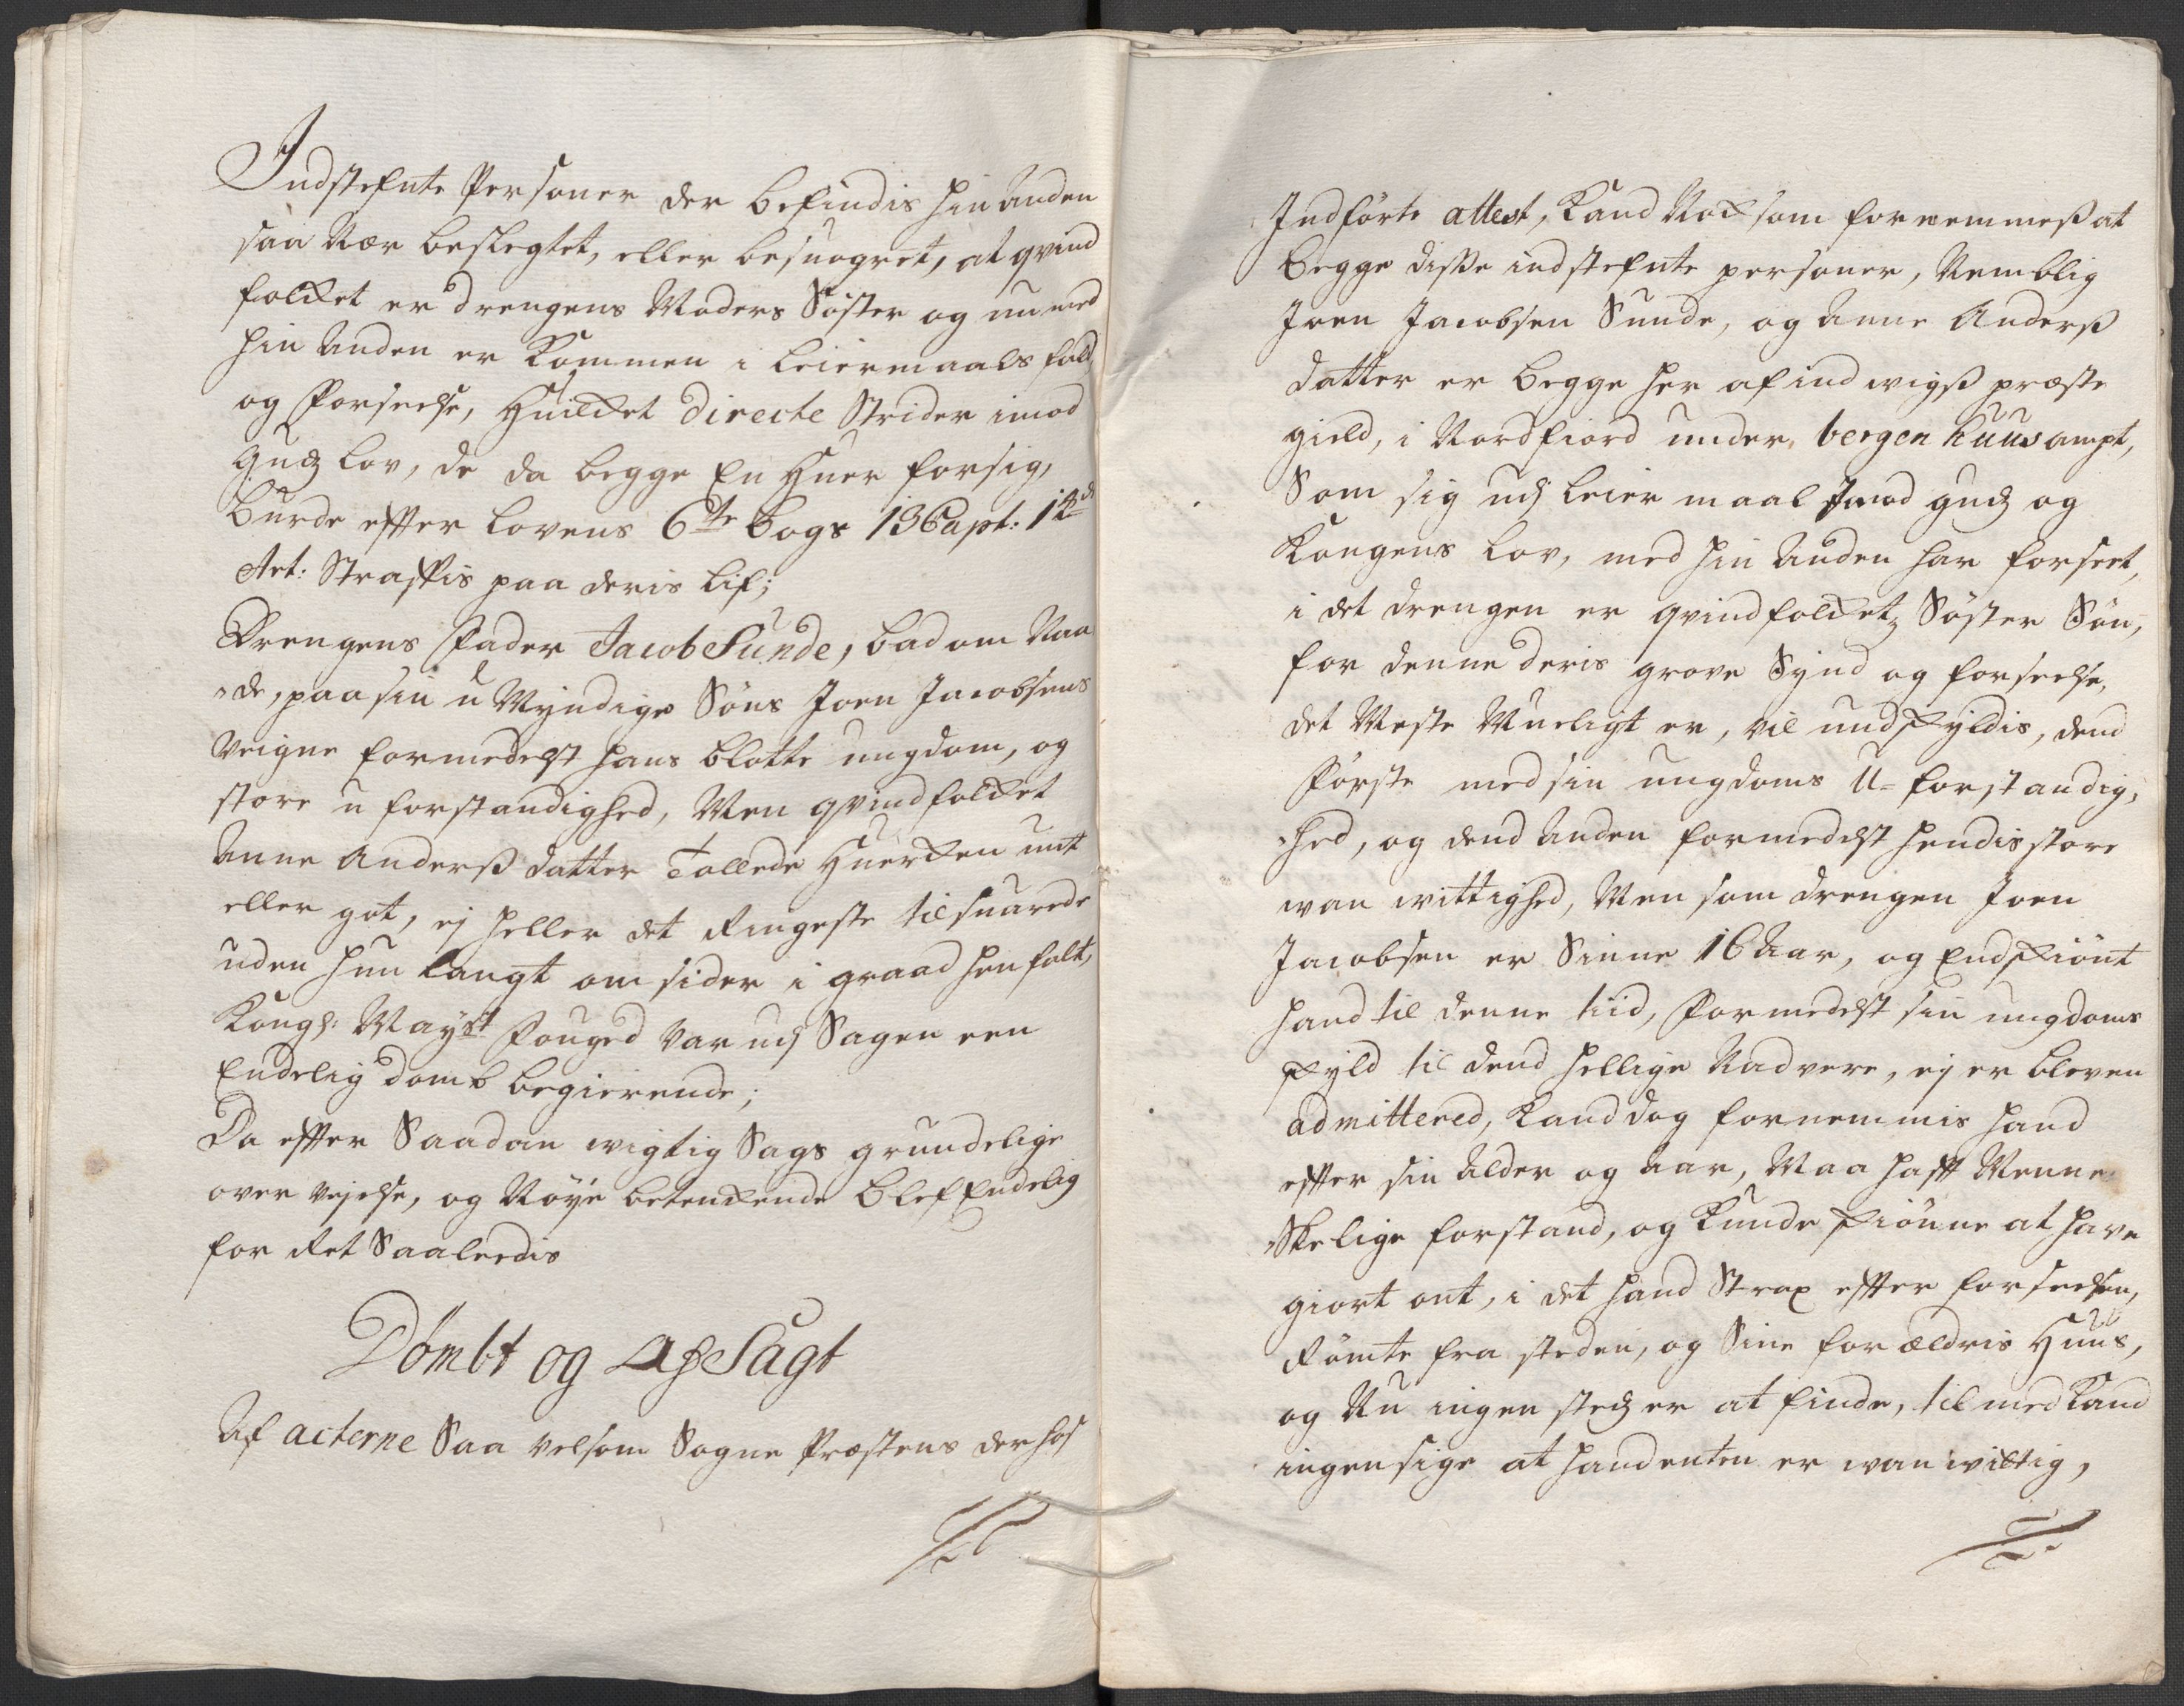 Indstefnte Personer der befindis hin Anden
saa Nær beslegtet, eller besuogret, at qvind
folchet er drengens Moders Söster og nu med
hin Anden er Kommen i leiermaals fald
og Forseelse, Huilchet directe Strider imod
Gudz lov, de da begge En Huer forsig,
burde effter lovens 6te bogs 13 Capt: 14de
Art: Straffis paa deris lif;
Drengens Fader Jacob Sunde, bad om Naa
de, paa sin u Myndige Söns Joen Jacobsens
Veigne formedelst hans blotte ungdom, og
store u forstandighed, Men qvindfolchet
Anne Anderß datter tallede Huerchen unt
eller got, ej heller det Ringeste tilsuarede
uden hun langt om sider i graad henfalt,
Kongl: Mayst Fouged var udj Sagen een
Endelig domb begierende;
Da effter Saadan wigtig Sags grundelige
over vejelse, og Nöye betenchende blef Endelig
for Ret Saaledis
Dömbt og AfSagt
Af acterne Saa velsom Sogne Præstens der hos
Indförte attest, Kand Noch som fornemmeß at
begge disse indstefnte personer, Nemblig
Joen Jacobsen Sunde, og Anne Anderß
datter er begge her af ind wigß præste
gield, i Nordfiord under, bergen huus ampt,
Som sig udj leier maal Imod gudz og
Kongens lov, med hin Anden har forseet,
i det drengen er qvindfolchetz Söster Sön,
for denne deris grove Synd og forseelse,
det Meste Mueligt er, vil undschyldis, dend
Förste med sin ungdoms U-forstandig,
hed, og dend Anden formedelst hendis store
wan wittighed, Men som drengen Joen
Jacobsen er Sinne 16 Aar, og Endschiönt
hand til denne tiid, Formedelst sin ungdoms
schyld til dend hellige Nadvere, ej er bleven
admittered, Kand dog fornemmis hand
effter sin Alder og Aar, Maa hafft Menne
Skelige forstand, og Kunde schiönne at have
giort ont, i det hand Strax effter forseelsen,
Römte fra steden, og Sine forældris Huus,
og Nu ingen stedz er at finde, til med Kand
ingen sige at hand enten er wan wittig,